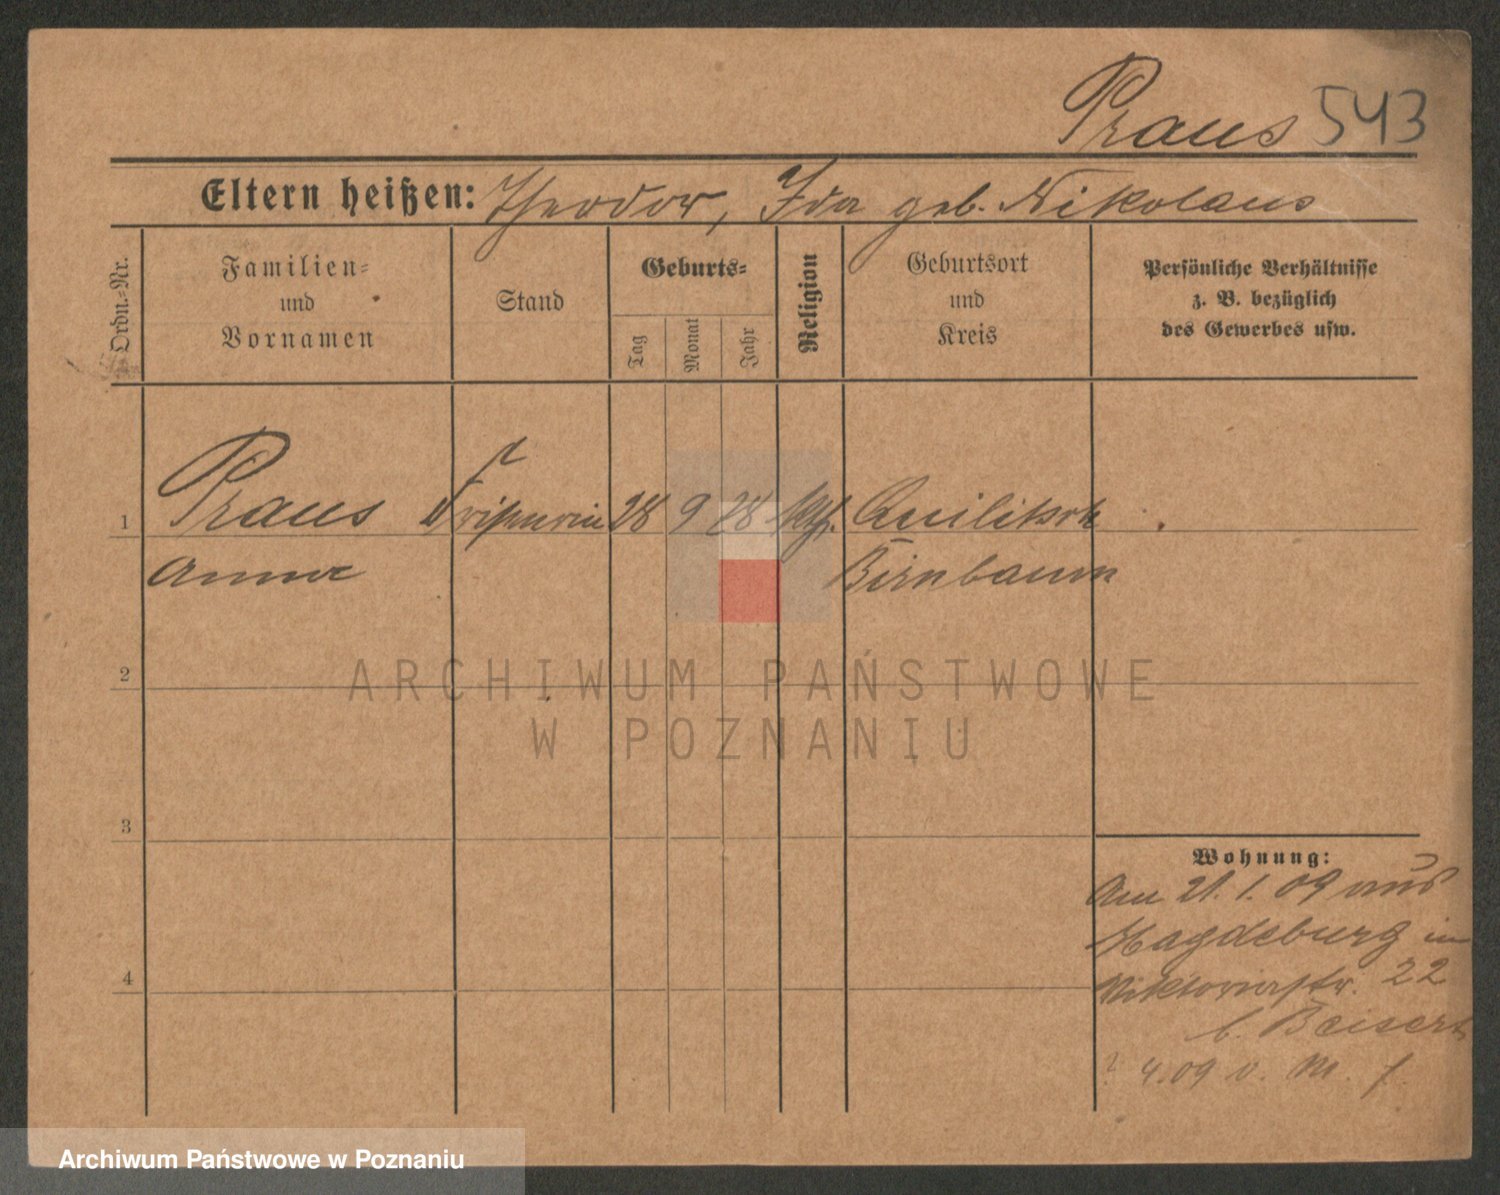 Praus 543
Eltern heißen: Theodor, Ida geb. Nikolaus
Ordn.-Nr.
Familien-
und
Vornamen
Stand
Geburts-
Tag
Monat
Jahr
Religion
Geburtsort
und
Kreis
Persönliche Verhältnisse
z. B. bezüglich
des Gewerbes usw.
1 Praus Friseurin 28 9 88 kth.
Anna Birnbaum
2
3
4
Wohnung:
Am 21. 1. 09 aus
Magdeburg in
Viktoriastr. 22
b. Beisert
4.09 v. M. f.
ARCHIWUM PAŃSTWOWE
W POZNANIU
Archiwum Państwowe w Poznaniu